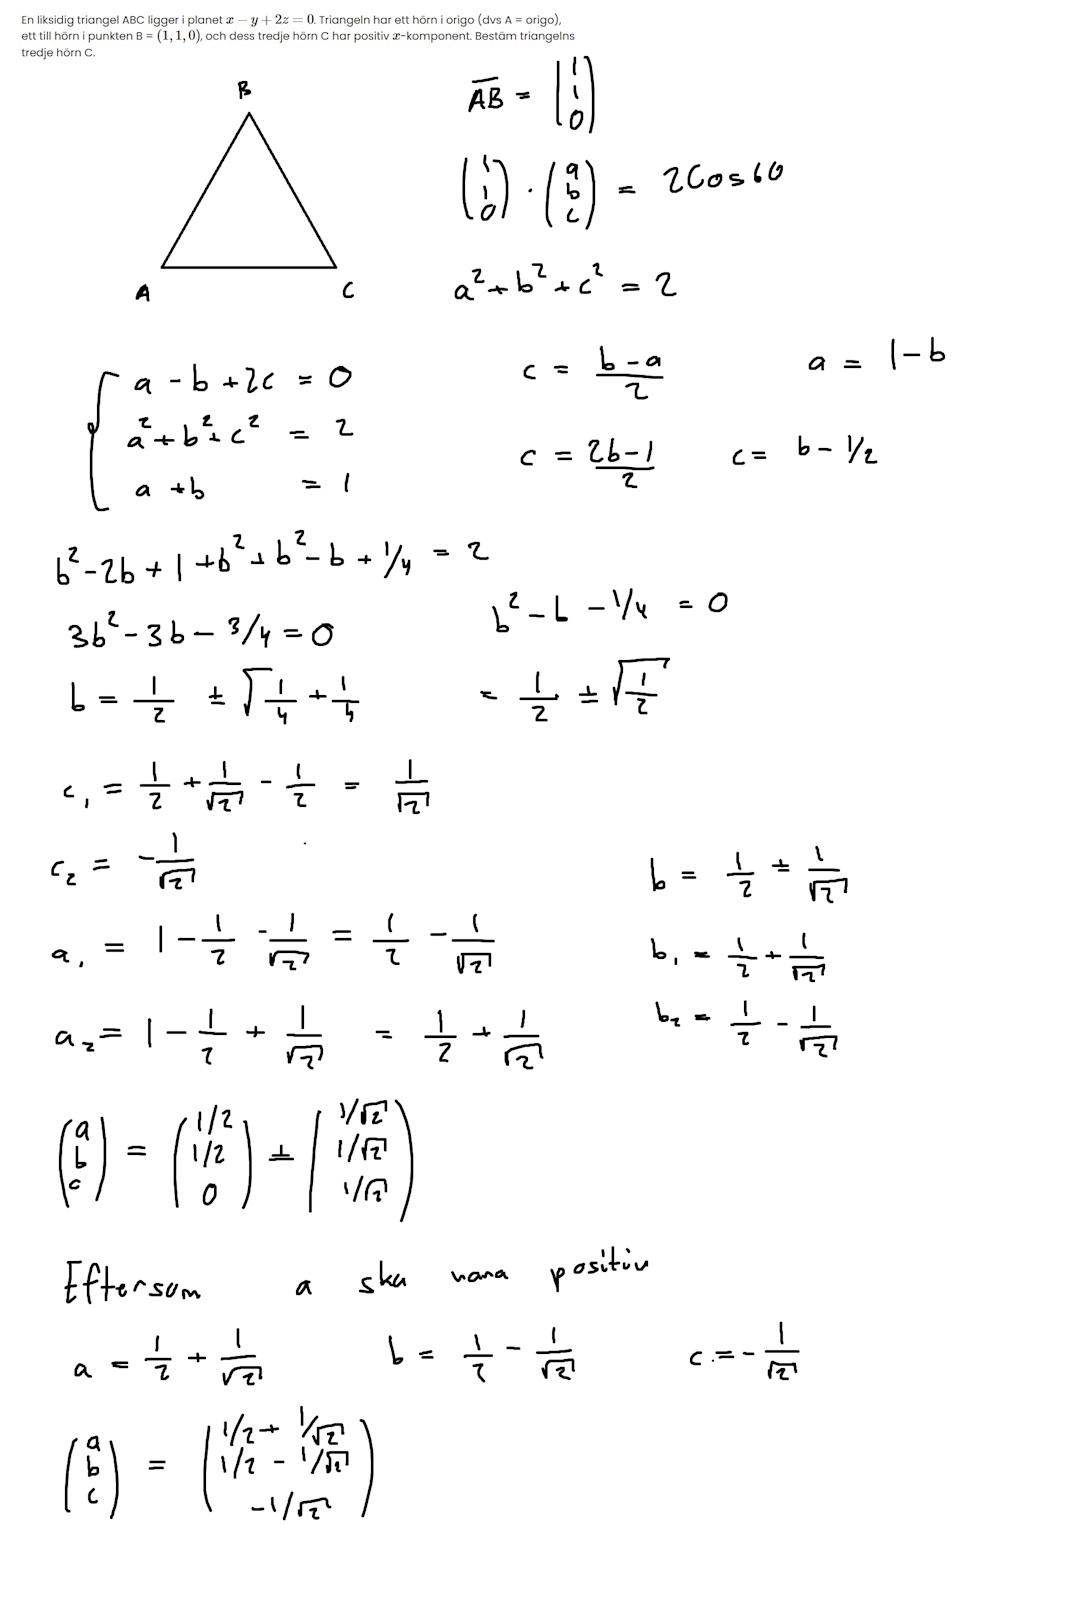 En liksidig triangel ABC ligger i planet x − y + 2z = 0. Triangeln har ett hörn i origo (dvs A = origo),
ett till hörn i punkten B = (1, 1, 0), och dess tredje hörn C har positiv x-komponent. Bestäm triangelns
tredje hörn C.
B
A
C
AB = (1 1 0)
(1 1 0) · (a b c) = 2Cos60
a² + b² + c² = 2
a - b + 2c = 0
a² + b² + c² = 2
a + b = 1
c = (b-a)/2
a = 1-b
c = (2b-1)/2
c = b - 1/2
b² - 2b + 1 + b² + b² - b + 1/4 = 2
3b² - 3b - 3/4 = 0
b² - b - 1/4 = 0
b = 1/2 ± √(1/4 + 1/4) = 1/2 ± √(1/2)
c₁ = 1/2 + 1/√2 - 1/2 = 1/√2
c₂ = -1/√2
b = 1/2 ± 1/√2
a₁ = 1 - 1/2 - 1/√2 = 1/2 - 1/√2
b₁ = 1/2 + 1/√2
a₂ = 1 - 1/2 + 1/√2 = 1/2 + 1/√2
b₂ = 1/2 - 1/√2
(a b c) = (1/2 1/2 0) ± (1/√2 1/√2 1/√2)
Eftersom a ska vara positiv
a = 1/2 + 1/√2
b = 1/2 - 1/√2
c = -1/√2
(a b c) = (1/2 + 1/√2 1/2 - 1/√2 -1/√2)